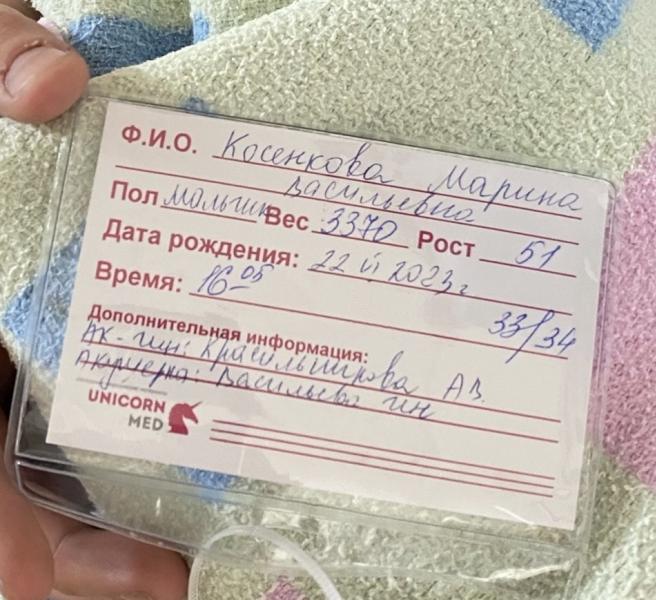 Ф.И.О. Косенкова Марина
Васильевна
Пол мальчик Вес 3370 Рост 51
Дата рождения: 22 VI 2023г
Время: 16 05
33/34
Дополнительная информация:
Ак-гин: Красильникова А.В.
Акушерка: Васильева
UNICORN
MED